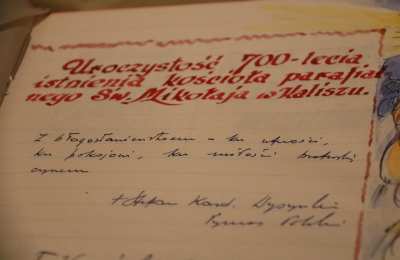 Uroczystość 700-lecia
istnienia kościoła parafial
nego Św. Mikołaja w Kaliszu.
Z błogosławieństwem – ku ufności,
ku pokojowi, ku miłości
czynem
+ Stefan Kard. Wyszyński
Prymas Polski